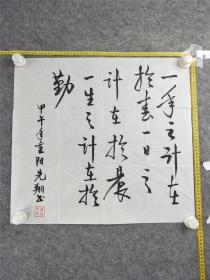 一年之计在
於春一日之
计在於晨
一生之计在於
勤
甲午年重阳先翔书